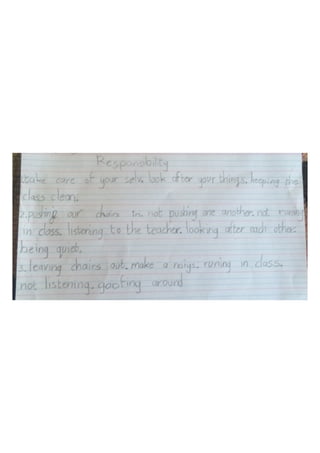 Responsibility
1.take care of your selvs. look after your things. keeping the
class clean.
2.pushing our chairs in. not pushing one another. not runing
in class. listening to the teacher. looking after each other.
being quiet.
3.leaving chairs out. make a noiys. runing in class.
not listening. goofing around